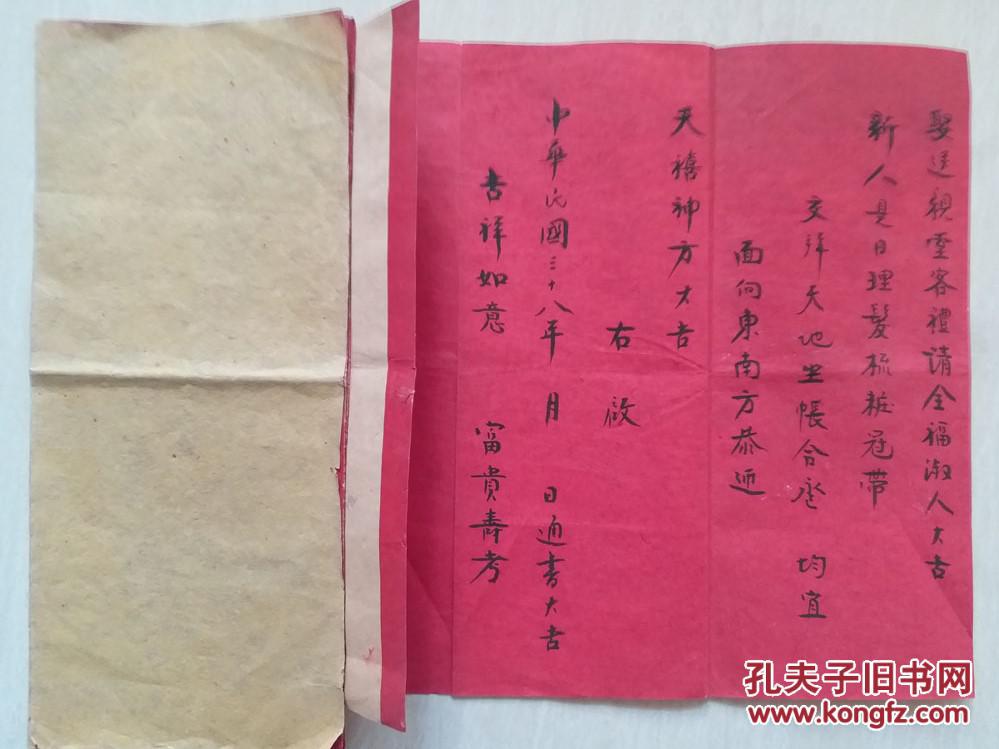 娶送親堂客禮請全福淑人大吉
新人是日理髮梳粧冠帶
交拜天地坐帳合卺 均宜
面向東南方恭迎
天禧神方大吉
右啟
中華民國三十八年 月 日通書大吉
吉祥如意 富貴壽考
孔夫子旧书网
www.kongfz.com